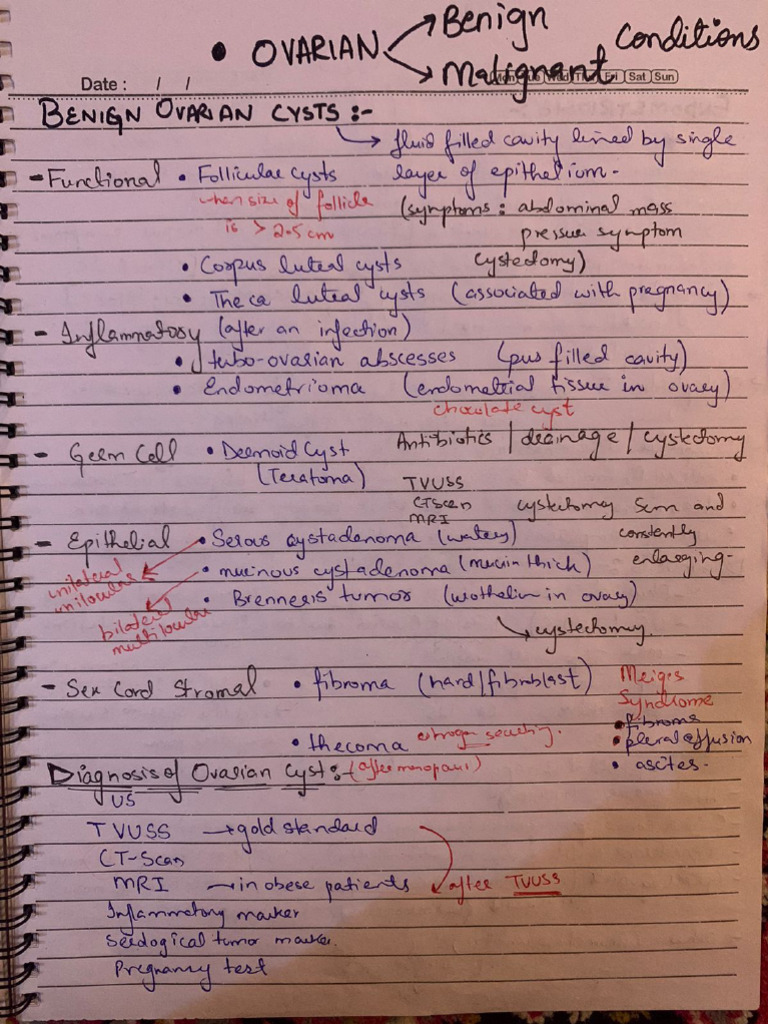 • OVARIAN → Benign
→ Malignant
Conditions
Date : / / Fri Sat Sun
BENIGN OVARIAN CYSTS :-
→ fluid filled cavity lined by single
layer of epithelium.
- Functional • Follicular cysts
when size of follicle
is > 2.5 cm
(symptoms : abdominal mass
pressure symptom
cystectomy)
• Corpus luteal cysts
• Theca luteal cysts (associated with pregnancy)
- Inflammatory (after an infection)
• tubo-ovarian abscesses (pus filled cavity)
• Endometrioma (endometrial tissue in ovary)
chocolate cyst
Antibiotics / drainage / cystectomy
- Germ Cell • Dermoid Cyst
(Teratoma)
TVUSS
CTScan
MRI
cystectomy 5cm and
constently
enlarging-
- Epithelial • Serous cystadenoma (watery)
unilateral
unilocular
• mucinous cystadenoma (mucin thick)
bilateral
multilocular
• Brenner's tumor (urothelium in ovary)
→ cystectomy.
- Sex Cord Stromal • fibroma (hard/fibroblast)
Meigs
Syndrome
• fibroma
• pleral effusion
• ascites-
• thecoma estrogen secreting.
(after menopause)
Diagnosis of Ovarian Cyst :-
US
TVUSS → gold standard
CT-Scan
MRI → in obese patients
after TVUSS
Inflammatory marker
Serological tumor marker.
Pregnancy test